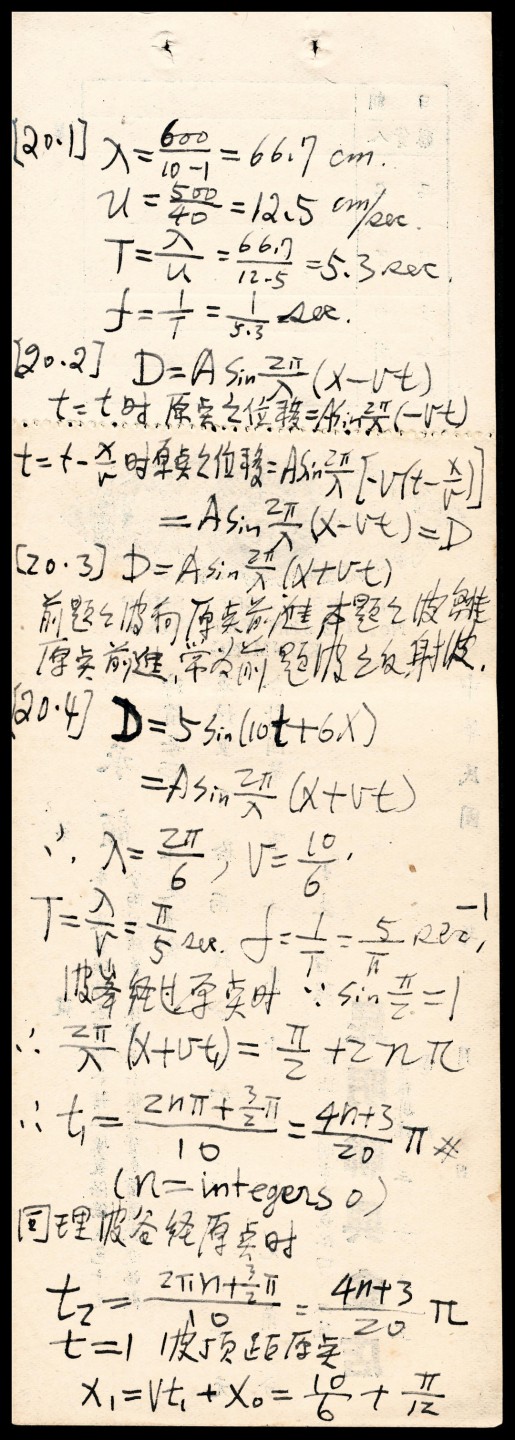 [20.1] λ=600/(10-1)=66.7 cm.
u=500/40=12.5 cm/sec.
T=λ/u=66.7/12.5=5.3 sec.
f=1/T=1/5.3 sec.
[20.2] D=A sin 2π/λ (x-vt)
t=t时 原点之位移=A sin 2π/λ (-vt)
t=t-x/v 时原点之位移=A sin 2π/λ [-v(t-x/v)]
=A sin 2π/λ (x-vt)=D
[20.3] D=A sin 2π/λ (x+vt)
前题之波向原点前進本题之波離
原点前進,常为前题波之反射波.
[20.4] D=5 sin(10t+6x)
=A sin 2π/λ (x+vt)
∴ λ=2π/6, v=10/6.
T=λ/v=π/5 sec. f=1/T=5/π sec⁻¹,
波峯经过原点时 ∵ sin π/2=1
∴ 2π/λ (x+vt₁)=π/2+2nπ
∴ t₁=(2nπ+3/2π)/10=(4n+3)/20 π
(n=integers 0)
同理波谷经原点时
t₂=(2πn+3/2π)/10=(4n+3)/20 π
t=1 波顶距原点
x₁=vt₁+x₀=10/6+π/12